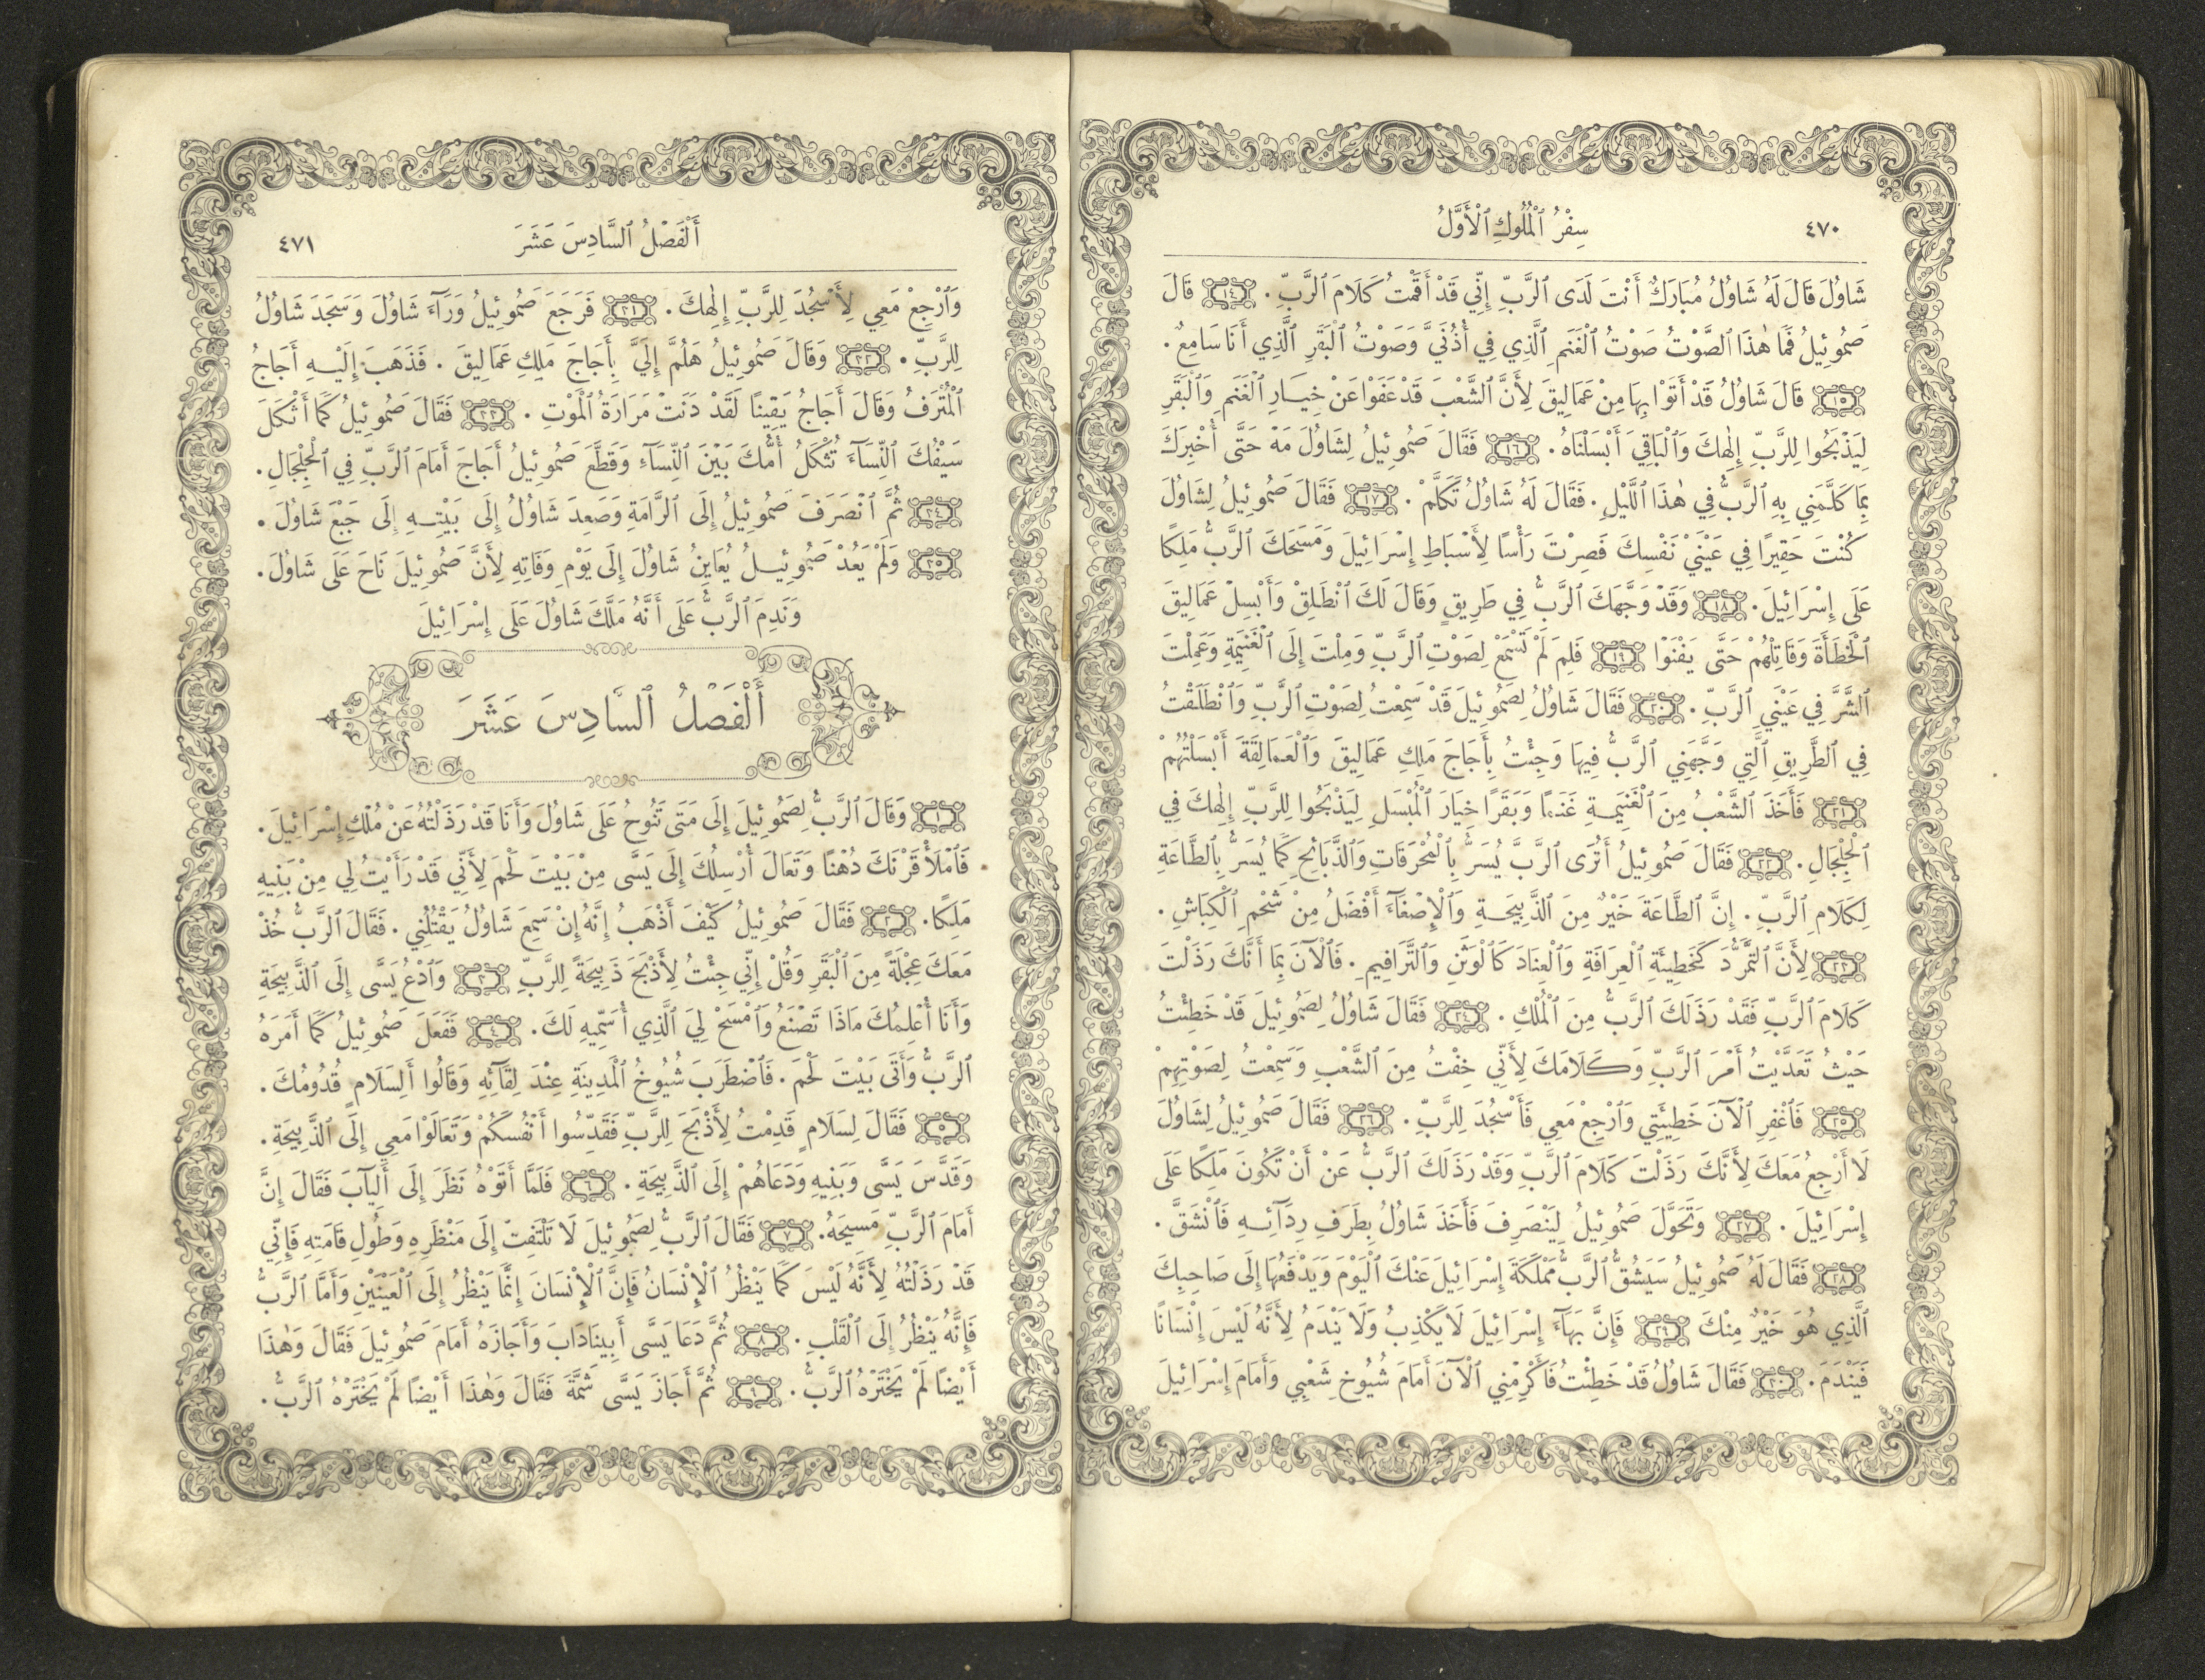 ٤٧٠
سِفْرُ ٱلْمُلُوكِ ٱلْأَوَّلُ
شَاوُلَ قَالَ لَهُ شَاوُلُ مُبَارَكٌ أَنْتَ لَدَى ٱلرَّبِّ إِنِّي قَدْ أَقَمْتُ كَلَامَ ٱلرَّبِّ. ١٤ قَالَ
صَمُوئِيلُ فَمَا هٰذَا ٱلصَّوْتُ صَوْتُ ٱلْغَنَمِ ٱلَّذِي فِي أُذُنَيَّ وَصَوْتُ ٱلْبَقَرِ ٱلَّذِي أَنَا سَامِعٌ.
١٥ قَالَ شَاوُلُ قَدْ أَتَوْا بِهَا مِنْ عَمَالِيقَ لِأَنَّ ٱلشَّعْبَ قَدْ عَفَوْا عَنْ خِيَارِ ٱلْغَنَمِ وَٱلْبَقَرِ
لِيَذْبَحُوا لِلرَّبِّ إِلٰهِكَ وَٱلْبَاقِيَ أَبْسَلْنَاهُ. ١٦ فَقَالَ صَمُوئِيلُ لِشَاوُلَ مَهْ حَتَّى أُخْبِرَكَ
بِمَا كَلَّمَنِي بِهِ ٱلرَّبُّ فِي هٰذَا ٱللَّيْلِ. فَقَالَ لَهُ شَاوُلُ تَكَلَّمْ. ١٧ فَقَالَ صَمُوئِيلُ لِشَاوُلَ
كُنْتَ حَقِيرًا فِي عَيْنَيْ نَفْسِكَ فَصِرْتَ رَأْسًا لِأَسْبَاطِ إِسْرَائِيلَ وَمَسَحَكَ ٱلرَّبُّ مَلِكًا
عَلَى إِسْرَائِيلَ. ١٨ وَقَدْ وَجَّهَكَ ٱلرَّبُّ فِي طَرِيقٍ وَقَالَ لَكَ ٱنْطَلِقْ وَأَبْسِلْ عَمَالِيقَ
ٱلْخَطَأَةَ وَقَاتِلْهُمْ حَتَّى يَفْنَوْا ١٩ فَلِمَ لَمْ تَسْمَعْ لِصَوْتِ ٱلرَّبِّ وَمِلْتَ إِلَى ٱلْغَنِيمَةِ وَعَمِلْتَ
ٱلشَّرَّ فِي عَيْنَيِ ٱلرَّبِّ. ٢٠ فَقَالَ شَاوُلُ لِصَمُوئِيلَ قَدْ سَمِعْتُ لِصَوْتِ ٱلرَّبِّ وَٱنْطَلَقْتُ
فِي ٱلطَّرِيقِ ٱلَّتِي وَجَّهَنِي ٱلرَّبُّ فِيهَا وَجِئْتُ بِأَجَاجَ مَلِكِ عَمَالِيقَ وَٱلْعَمَالِقَةَ أَبْسَلْتُهُمْ
٢١ فَأَخَذَ ٱلشَّعْبُ مِنَ ٱلْغَنِيمَةِ غَنَمًا وَبَقَرًا خِيَارَ ٱلْمُبْسَلِ لِيَذْبَحُوا لِلرَّبِّ إِلٰهِكَ فِي
ٱلْجِلْجَالِ. ٢٢ فَقَالَ صَمُوئِيلُ أَتُرَى ٱلرَّبَّ يُسَرُّ بِٱلْمُحْرَقَاتِ وَٱلذَّبَائِحِ كَمَا يُسَرُّ بِٱلطَّاعَةِ
لِكَلَامِ ٱلرَّبِّ. إِنَّ ٱلطَّاعَةَ خَيْرٌ مِنَ ٱلذَّبِيحَةِ وَٱلْإِصْغَآءَ أَفْضَلُ مِنْ شَحْمِ ٱلْكِبَاشِ.
٢٣ لِأَنَّ ٱلتَّمَرُّدَ كَخَطِيئَةِ ٱلْعِرَافَةِ وَٱلْعِنَادَ كَٱلْوَثَنِ وَٱلتَّرَافِيمِ. فَٱلْآنَ بِمَا أَنَّكَ رَذَلْتَ
كَلَامَ ٱلرَّبِّ فَقَدْ رَذَلَكَ ٱلرَّبُّ مِنَ ٱلْمُلْكِ. ٢٤ فَقَالَ شَاوُلُ لِصَمُوئِيلَ قَدْ خَطِئْتُ
حَيْثُ تَعَدَّيْتُ أَمْرَ ٱلرَّبِّ وَكَلَامَكَ لِأَنِّي خِفْتُ مِنَ ٱلشَّعْبِ وَسَمِعْتُ لِصَوْتِهِمْ
٢٥ فَٱغْفِرِ ٱلْآنَ خَطِيئَتِي وَٱرْجِعْ مَعِي فَأَسْجُدَ لِلرَّبِّ. ٢٦ فَقَالَ صَمُوئِيلُ لِشَاوُلَ
لَا أَرْجِعُ مَعَكَ لِأَنَّكَ رَذَلْتَ كَلَامَ ٱلرَّبِّ وَقَدْ رَذَلَكَ ٱلرَّبُّ عَنْ أَنْ تَكُونَ مَلِكًا عَلَى
إِسْرَائِيلَ. ٢٧ وَتَحَوَّلَ صَمُوئِيلُ لِيَنْصَرِفَ فَأَخَذَ شَاوُلُ بِطَرَفِ رِدَآئِهِ فَٱنْشَقَّ.
٢٨ فَقَالَ لَهُ صَمُوئِيلُ سَيَشُقُّ ٱلرَّبُّ مَمْلَكَةَ إِسْرَائِيلَ عَنْكَ ٱلْيَوْمَ وَيَدْفَعُهَا إِلَى صَاحِبِكَ
ٱلَّذِي هُوَ خَيْرٌ مِنْكَ ٢٩ فَإِنَّ بَهَآءَ إِسْرَائِيلَ لَا يَكْذِبُ وَلَا يَنْدَمُ لِأَنَّهُ لَيْسَ إِنْسَانًا
فَيَنْدَمَ. ٣٠ فَقَالَ شَاوُلُ قَدْ خَطِئْتُ فَأَكْرِمْنِي ٱلْآنَ أَمَامَ شُيُوخِ شَعْبِي وَأَمَامَ إِسْرَائِيلَ
أَلْفَصْلُ ٱلسَّادِسَ عَشَرَ
٤٧١
وَٱرْجِعْ مَعِي لِأَسْجُدَ لِلرَّبِّ إِلٰهِكَ. ٣١ فَرَجَعَ صَمُوئِيلُ وَرَآءَ شَاوُلَ وَسَجَدَ شَاوُلُ
لِلرَّبِّ. ٣٢ وَقَالَ صَمُوئِيلُ هَلُمَّ إِلَيَّ بِأَجَاجَ مَلِكِ عَمَالِيقَ. فَذَهَبَ إِلَيْهِ أَجَاجُ
ٱلْمُتْرَفُ وَقَالَ أَجَاجُ يَقِينًا لَقَدْ دَنَتْ مَرَارَةُ ٱلْمَوْتِ. ٣٣ فَقَالَ صَمُوئِيلُ كَمَا أَثْكَلَ
سَيْفُكَ ٱلنِّسَآءَ تُثْكَلُ أُمُّكَ بَيْنَ ٱلنِّسَآءِ وَقَطَّعَ صَمُوئِيلُ أَجَاجَ أَمَامَ ٱلرَّبِّ فِي ٱلْجِلْجَالِ.
٣٤ ثُمَّ ٱنْصَرَفَ صَمُوئِيلُ إِلَى ٱلرَّامَةِ وَصَعِدَ شَاوُلُ إِلَى بَيْتِهِ إِلَى جَبْعَ شَاوُلَ.
٣٥ وَلَمْ يَعُدْ صَمُوئِيلُ يُعَايِنُ شَاوُلَ إِلَى يَوْمِ وَفَاتِهِ لِأَنَّ صَمُوئِيلَ نَاحَ عَلَى شَاوُلَ.
وَنَدِمَ ٱلرَّبُّ عَلَى أَنَّهُ مَلَّكَ شَاوُلَ عَلَى إِسْرَائِيلَ
أَلْفَصْلُ ٱلسَّادِسَ عَشَرَ
١ وَقَالَ ٱلرَّبُّ لِصَمُوئِيلَ إِلَى مَتَى تَنُوحُ عَلَى شَاوُلَ وَأَنَا قَدْ رَذَلْتُهُ عَنْ مُلْكِ إِسْرَائِيلَ.
فَٱمْلَأْ قَرْنَكَ دُهْنًا وَتَعَالَ أُرْسِلُكَ إِلَى يَسَّى مِنْ بَيْتَ لَحْمَ لِأَنِّي قَدْ رَأَيْتُ لِي مِنْ بَنِيهِ
مَلِكًا. ٢ فَقَالَ صَمُوئِيلُ كَيْفَ أَذْهَبُ إِنَّهُ إِنْ سَمِعَ شَاوُلُ يَقْتُلُنِي. فَقَالَ ٱلرَّبُّ خُذْ
مَعَكَ عِجْلَةً مِنَ ٱلْبَقَرِ وَقُلْ إِنِّي جِئْتُ لِأَذْبَحَ ذَبِيحَةً لِلرَّبِّ ٣ وَٱدْعُ يَسَّى إِلَى ٱلذَّبِيحَةِ
وَأَنَا أُعْلِمُكَ مَاذَا تَصْنَعُ وَٱمْسَحْ لِيَ ٱلَّذِي أُسَمِّيهِ لَكَ. ٤ فَفَعَلَ صَمُوئِيلُ كَمَا أَمَرَهُ
ٱلرَّبُّ وَأَتَى بَيْتَ لَحْمَ. فَٱضْطَرَبَ شُيُوخُ ٱلْمَدِينَةِ عِنْدَ لِقَآئِهِ وَقَالُوا أَلِسَلَامٍ قُدُومُكَ.
٥ فَقَالَ لِسَلَامٍ قَدِمْتُ لِأَذْبَحَ لِلرَّبِّ فَقَدِّسُوا أَنْفُسَكُمْ وَتَعَالَوْا مَعِي إِلَى ٱلذَّبِيحَةِ.
وَقَدَّسَ يَسَّى وَبَنِيهِ وَدَعَاهُمْ إِلَى ٱلذَّبِيحَةِ. ٦ فَلَمَّا أَتَوْهُ نَظَرَ إِلَى أَلِيآبَ فَقَالَ إِنَّ
أَمَامَ ٱلرَّبِّ مَسِيحَهُ. ٧ فَقَالَ ٱلرَّبُّ لِصَمُوئِيلَ لَا تَلْتَفِتْ إِلَى مَنْظَرِهِ وَطُولِ قَامَتِهِ فَإِنِّي
قَدْ رَذَلْتُهُ لِأَنَّهُ لَيْسَ كَمَا يَنْظُرُ ٱلْإِنْسَانُ فَإِنَّ ٱلْإِنْسَانَ إِنَّمَا يَنْظُرُ إِلَى ٱلْعَيْنَيْنِ وَأَمَّا ٱلرَّبُّ
فَإِنَّهُ يَنْظُرُ إِلَى ٱلْقَلْبِ. ٨ ثُمَّ دَعَا يَسَّى أَبِينَادَابَ وَأَجَازَهُ أَمَامَ صَمُوئِيلَ فَقَالَ وَهٰذَا
أَيْضًا لَمْ يَخْتَرْهُ ٱلرَّبُّ. ٩ ثُمَّ أَجَازَ يَسَّى شَمَّةَ فَقَالَ وَهٰذَا أَيْضًا لَمْ يَخْتَرْهُ ٱلرَّبُّ.